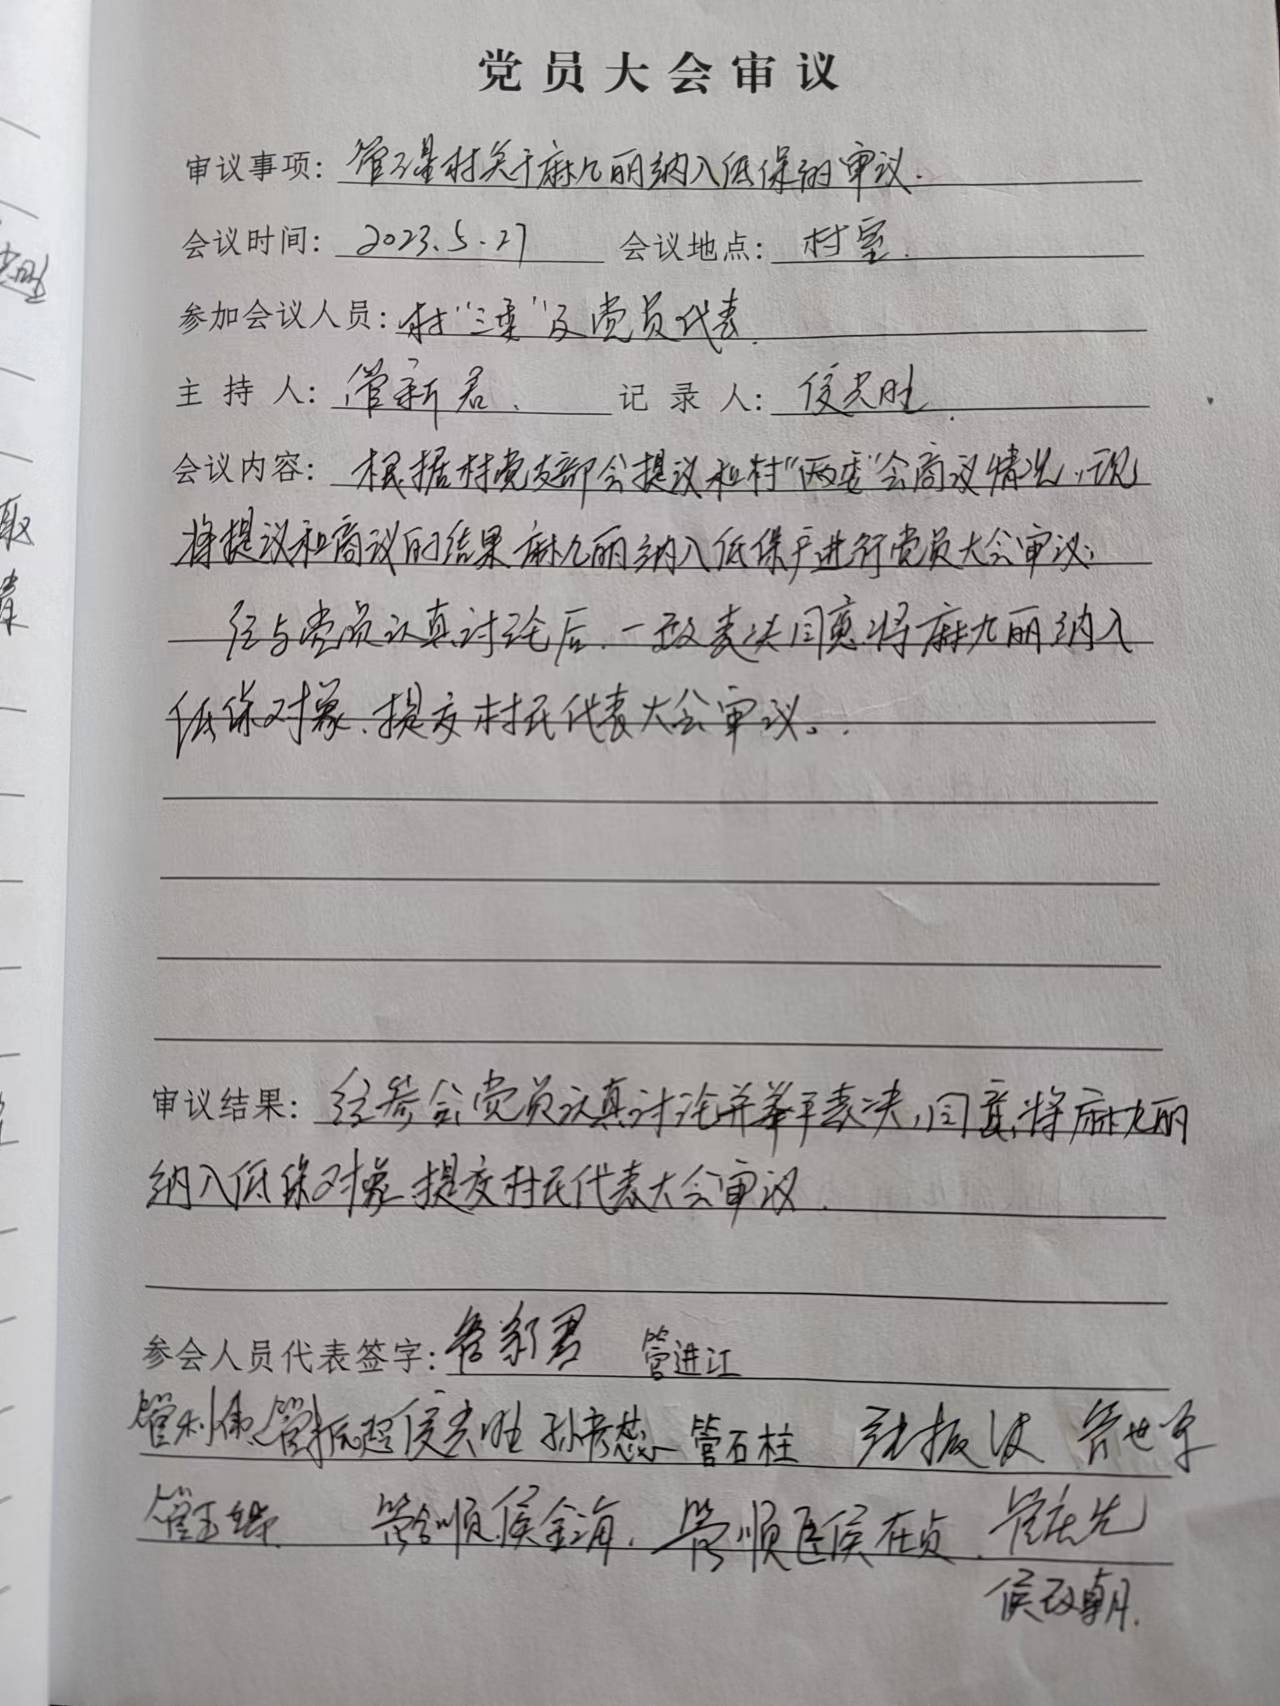 党员大会审议
审议事项: 管 村关于麻九丽纳入低保的审议.
会议时间: 2023.5.27 会议地点: 村室.
参加会议人员: 村“三委”及党员代表.
主持人: 管新君. 记录人: 侯光胜.
会议内容: 根据村党支部会提议和村“两委”会商议情况,现
将提议和商议的结果麻九丽纳入低保户进行党员大会审议:
经与党员认真讨论后,一致表决同意将麻九丽纳入
低保对象,提交村民代表大会审议。
审议结果: 经参会党员认真讨论并举手表决,同意将麻九丽
纳入低保对象,提交村民代表大会审议.
参会人员代表签字: 管新君 管进江
管利 管振超 侯光胜 孙彦 管石柱 张振波 管世
管玉 管合顺 侯金海. 管顺 侯在贞. 管庆先
侯政朝.